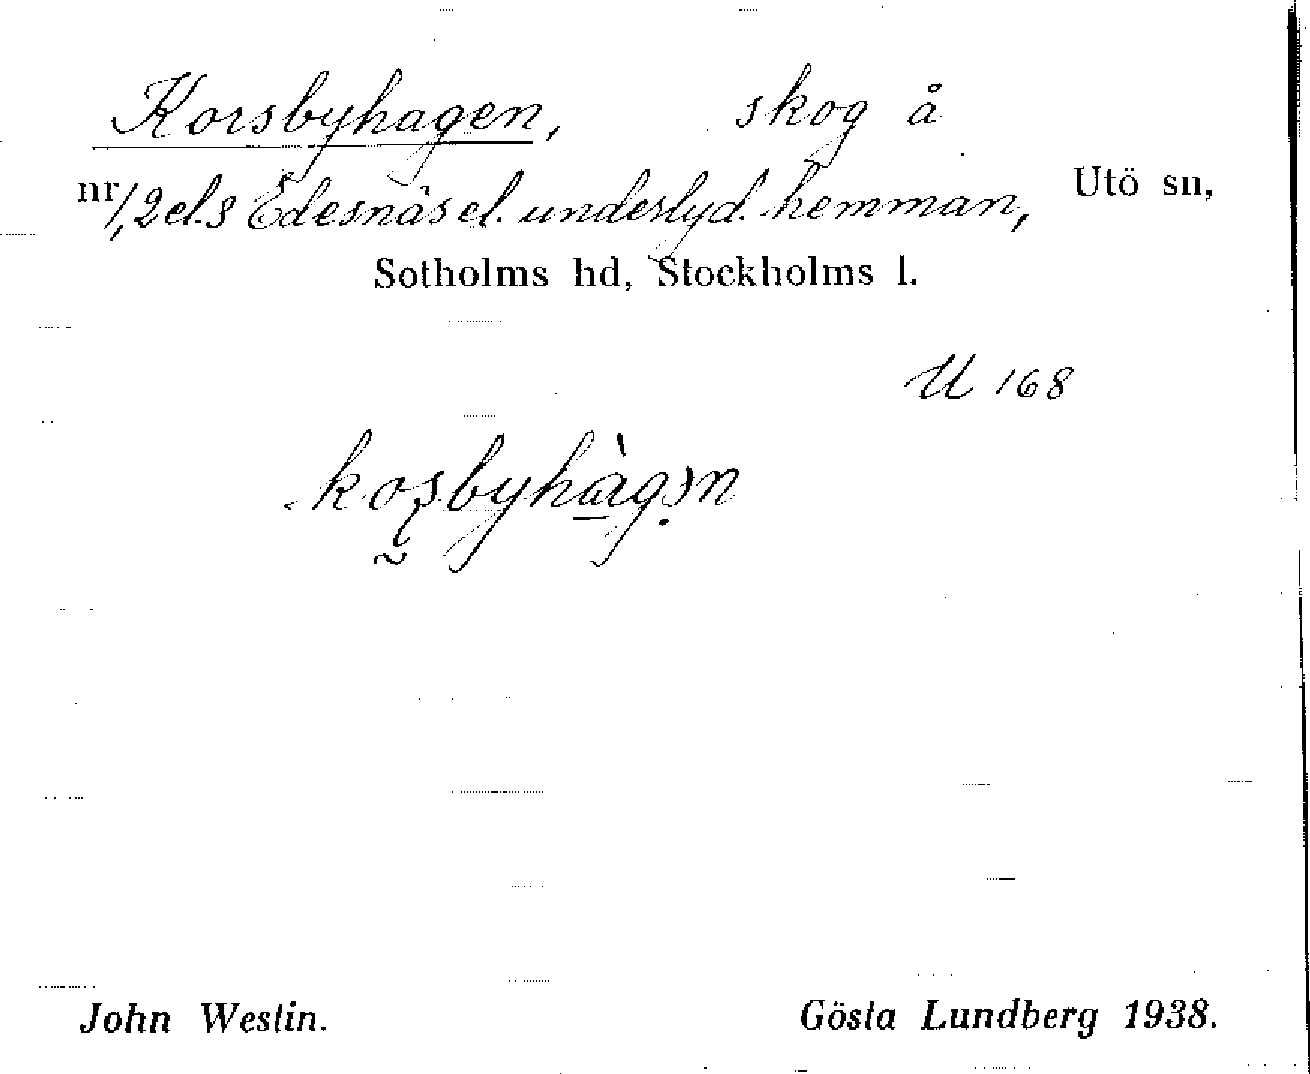 Korsbyhagen, skog å
nr 1, 2 el. 3 Edesnäs el. underlyd. hemman, Utö sn,
Sotholms hd, Stockholms l.
U 168
John Westin. Gösta Lundberg 1938.